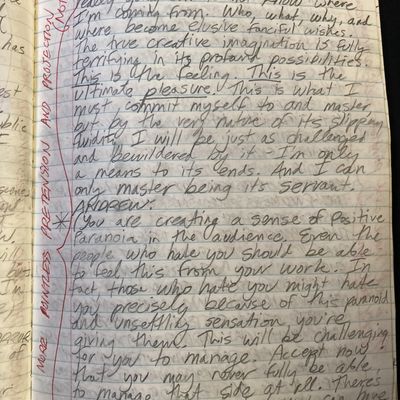 know where
I'm coming from. Who, what, why, and
where become elusive fanciful wishes.
The true creative imagination is fully
terrifying in its profound possibilities.
This is the feeling. This is the
ultimate pleasure. This is what I
must commit myself to and master,
but by the very nature of its slipping
I will be just as challenged
and bewildered by it - I'm only
a means to its ends. And I can
only master being its servant.
ANDREW:
* You are creating a sense of Positive
Paranoia in the audience. Even the
people who hate you should be able
to feel this from your work. In
fact those who hate you might hate
you precisely because of this paranoid
and unsettling sensation you're
giving them. This will be challenging
for you to manage. Accept now
that you may never fully be able
to manage that side at all. There's
MORE POINTLESS PRETENSION AND PROJECTION